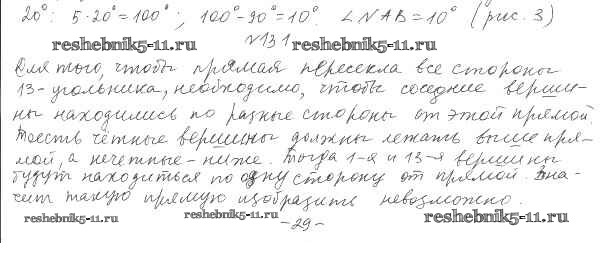 20°: 5·20°=100°; 100°-90°=10°. ∠NAB=10° (рис. 3)
reshebnik5-11.ru №131 reshebnik5-11.ru
Для того, чтобы прямая пересекла все стороны
13-угольника, необходимо, чтобы соседние верши-
ны находились по разные стороны от этой прямой.
Тоесть чётные вершины должны лежать выше пря-
мой, а нечетные - ниже. Тогда 1-я и 13-я вершины
будут находиться по одну сторону от прямой. Зна-
чит такую прямую изобразить невозможно.
reshebnik5-11.ru reshebnik5-11.ru reshebnik5-11.ru
-29-